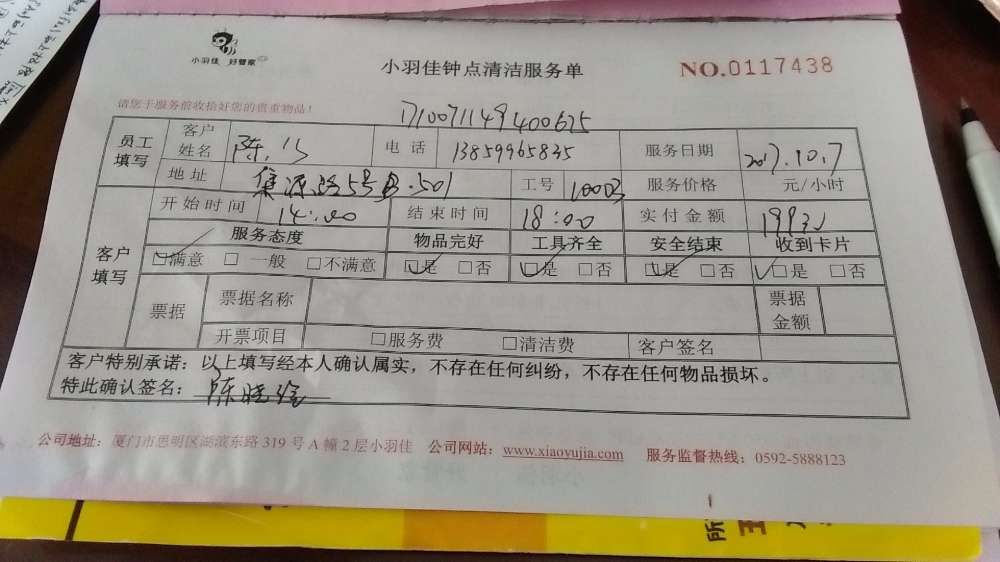 小羽佳 好管家
小羽佳钟点清洁服务单
NO.0117438
请您于服务前收拾好您的贵重物品!
1710071149400625
员工填写 客户姓名 陈 电话 13859965835 服务日期 2017.10.7
地址 集源路5号 501 工号 服务价格 元/小时
客户填写 开始时间 14:00 结束时间 18:00 实付金额
服务态度 物品完好 工具齐全 安全结束 收到卡片
☑满意 □一般 □不满意 ☑是 □否 ☑是 □否 ☑是 □否 ☑是 □否
票据 票据名称 票据金额
开票项目 □服务费 □清洁费 客户签名
客户特别承诺:以上填写经本人确认属实,不存在任何纠纷,不存在任何物品损坏。
特此确认签名: 陈晓
公司地址:厦门市思明区湖滨东路 319 号 A 幢 2 层小羽佳 公司网站:www.xiaoyujia.com 服务监督热线:0592-5888123